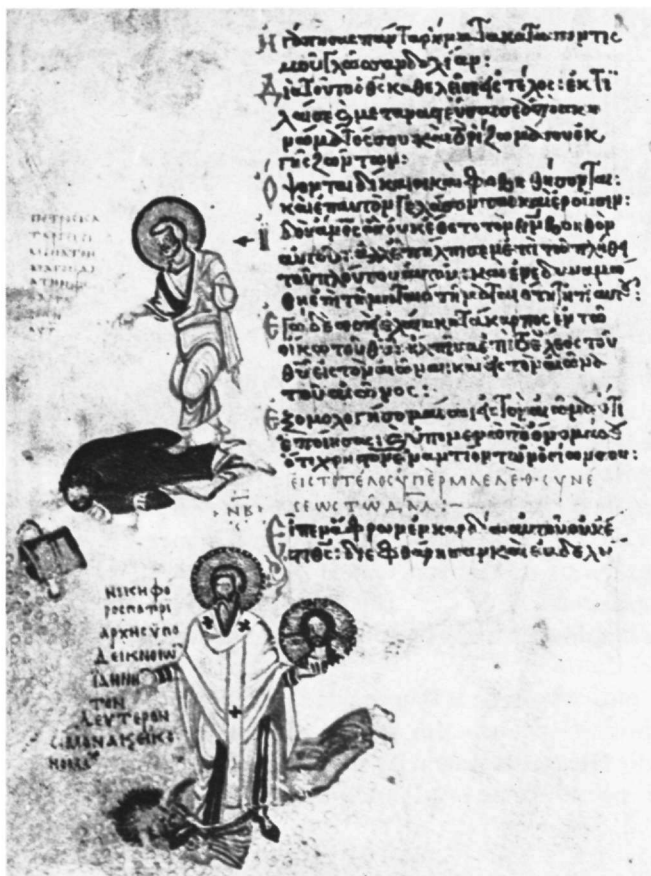 Ἠγάπησας πάντα τὰ ῥήματα καταποντισ
μοῦ γλῶσσαν δολίαν:
Διὰ τοῦτο ὁ θς καθελεῖ σε εἰς τέλος: ἐκτί
λαι σε καὶ μεταναστεύσαι σε ἀπὸ σκη
νώματός σου καὶ τὸ ῥίζωμά σου ἐκ
γῆς ζώντων:
Ὄψονται δίκαιοι καὶ φοβηθήσονται:
καὶ ἐπ αὐτὸν γελάσονται καὶ ἐροῦσιν:
Ἰδοὺ ἀνος ὃς οὐκ ἔθετο τὸν θν βοηθὸν
αὐτοῦ: ἀλλ ἐπήλπισεν ἐπὶ τὸ πλῆθος
τοῦ πλούτου αὐτοῦ: καὶ ἐνεδυναμώ
θη ἐπὶ τῇ ματαιότητι αὐτοῦ:
Ἐγὼ δὲ ὡσεὶ ἐλαία κατάκαρπος ἐν τῷ
οἴκῳ τοῦ θυ: ἤλπισα ἐπὶ τὸ ἔλεος τοῦ
θυ εἰς τὸν αἰῶνα: καὶ εἰς τὸν αἰῶνα
τοῦ αἰῶνος:
Ἐξομολογήσομαί σοι εἰς τὸν αἰῶνα ὅτι
ἐποίησας καὶ ὑπομενῶ τὸ ὄνομά σου
ὅτι χρηστὸν ἐναντίον τῶν ὁσίων σου:
ΕΙΣ ΤΟ ΤΕΛΟΣ ΥΠΕΡ ΜΑΕΛΕΘ ΣΥΝΕ
ΣΕΩΣ ΤΩ ΔΑΔ:
ΝΒ
Εἶπεν ἄφρων ἐν καρδίᾳ αὐτοῦ οὐκ ἔ
στι θς: διεφθάρησαν καὶ ἐβδελύ
ΠΕΤΡΟΣ ΚΑ
ΝΙΚΗΦΟ
ΡΟΣ ΠΑΤΡΙ
ΑΡΧΗΣ ΥΠΟ
ΔΕΙΚΝΟΙΩΝ
ΙΑΝΝΗ
ΤΟΝ
ΔΕΥΤΕΡΟΝ
ΣΙΜΟΝΑ Κ ΕΙΚΟ
ΝΟΜΑΧ